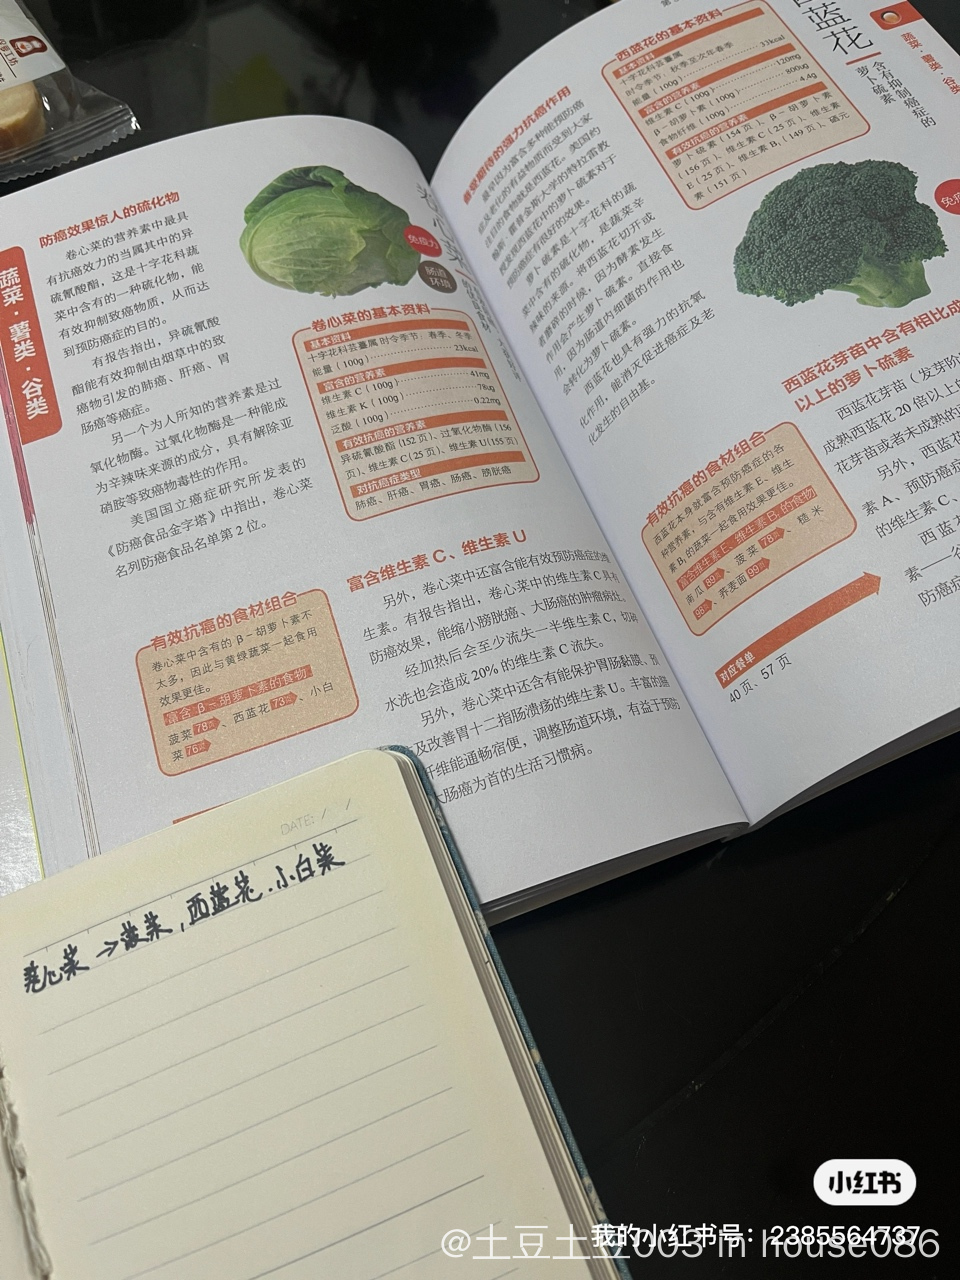 蔬菜·薯类·谷类
防癌效果惊人的硫化物
卷心菜的营养素中最具
有抗癌效力的当属其中的异
硫氰酸酯，这是十字花科蔬
菜中含有的一种硫化物，能
有效抑制致癌物质，从而达
到预防癌症的目的。
有报告指出，异硫氰酸
酯能有效抑制由烟草中的致
癌物引发的肺癌、肝癌、胃
肠癌等癌症。
另一个为人所知的营养素是过
氧化物酶。过氧化物酶是一种能成
为辛辣味来源的成分，具有解除亚
硝胺等致癌物毒性的作用。
美国国立癌症研究所发表的
《防癌食品金字塔》中指出，卷心菜
名列防癌食品名单第 2 位。
免疫力
肠道
环境
卷心菜的基本资料
基本资料
十字花科芸薹属 时令季节：春季、冬季
能量（100g）23kcal
富含的营养素
维生素 C（100g）41mg
维生素 K（100g）78ug
泛酸（100g）0.22mg
有效抗癌的营养素
异硫氰酸酯(152 页)、过氧化物酶(156
页)、维生素 C(25 页)、维生素 U(155 页)
对抗癌症类型
肺癌、肝癌、胃癌、肠癌、膀胱癌
有效抗癌的食材组合
卷心菜中含有的 β-胡萝卜素不
太多，因此与黄绿蔬菜一起食用
效果更佳。
富含 β-胡萝卜素的食物
菠菜 78页、西蓝花 73页、小白
菜 76页
富含维生素 C、维生素 U
另外，卷心菜中还富含能有效预防癌症的维
生素。有报告指出，卷心菜中的维生素 C 具有
防癌效果，能缩小膀胱癌、大肠癌的肿瘤病灶。
经加热后会至少流失一半维生素 C，切碎
水洗也会造成 20% 的维生素 C 流失。
另外，卷心菜中还含有能保护胃肠黏膜、预
及改善胃十二指肠溃疡的维生素 U。丰富的膳
纤维能通畅宿便，调整肠道环境，有益于预防
大肠癌为首的生活习惯病。
西蓝花
含有抑制癌症的
萝卜硫素
蔬菜·薯类·谷类
西蓝花的基本资料
基本资料
十字花科芸薹属
时令季节：秋季至次年春季
能量（100g）33kcal
富含的营养素
维生素 C（100g）120mg
β-胡萝卜素（100g）800ug
食物纤维（100g）4.4g
有效抗癌的营养素
萝卜硫素（154 页）、β-胡萝卜素
（156 页）、维生素 C（25 页）、维生素
E（25 页）、维生素 B₂（149 页）、硒元
素（151 页）
最受期待的强力抗癌作用
最早因为富含多种能预防癌
症及老化的有益物质而受到大家
注目的食物就是西蓝花。美国约
翰斯·霍普金斯大学的特拉雷教
授发现西蓝花中的萝卜硫素对于
预防癌症有很好的效果。
萝卜硫素是十字花科的蔬
菜中含有的硫化物，是蔬菜辛
辣味的来源。将西蓝花切开或
者嚼碎的时候，因为酵素发生
作用会产生萝卜硫素。直接食
用，因为肠道内细菌的作用也
会转化为萝卜硫素。
西蓝花也具有强力的抗氧
化作用，能消灭促进癌症及老
化发生的自由基。
有效抗癌的食材组合
西蓝花本身就富含预防癌症的各
种营养素，与含有维生素 E、维生
素 B₁ 的蔬菜一起食用效果更佳。
富含维生素 E、维生素 B₁ 的食物
南瓜 89页、菠菜 78页、糙米
98页、荞麦面 99页
对应餐单
40 页、57 页
西蓝花芽苗中含有相比成
以上的萝卜硫素
西蓝花芽苗（发芽阶
成熟西蓝花 20 倍以上的
花芽苗或者未成熟的
另外，西蓝花
素 A、预防癌症
的维生素 C、
西蓝
素——谷
防癌症
DATE: / /
卷心菜 → 菠菜，西蓝花.小白菜
小红书
我的小红书号：2385564737
@土豆土豆003 in house086